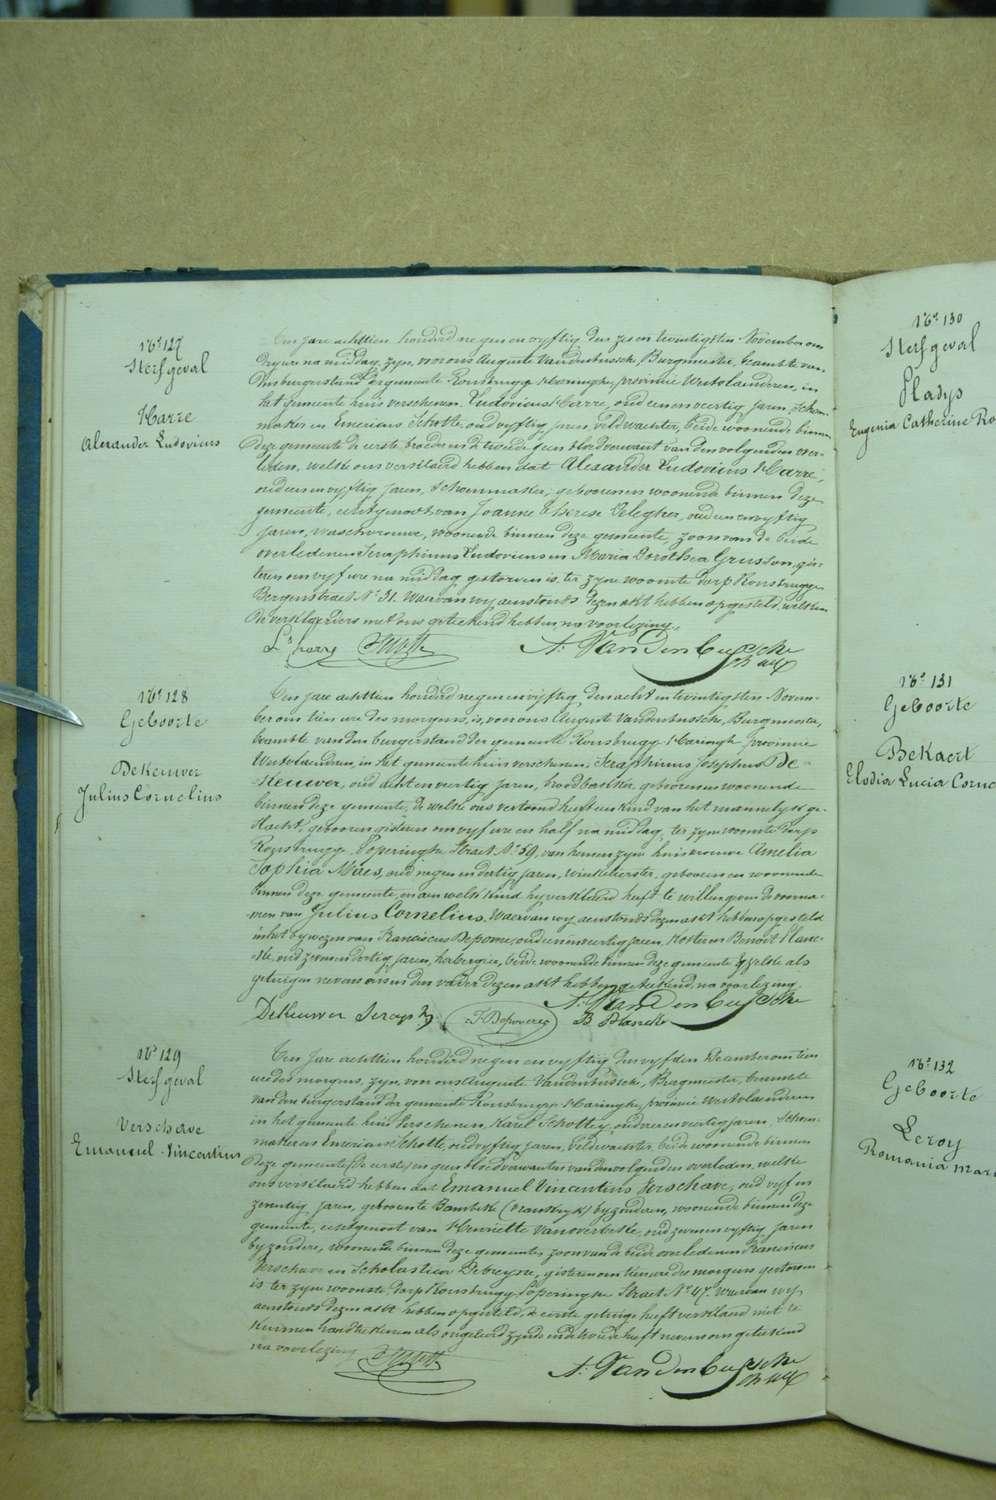 N° 127
Sterfgeval
Harre
Alexander Ludovicus
Ten jare achttien honderd negen en vyftig den zes en twintigsten November om
dry ure na middag, zyn, voor ons Auguste Vandenbussche, Burgmeester, beambte van
den burgerstand der gemeente Rousbrugge-Haringhe, provincie Westvlaenderen, in
het gemeente huis verschenen, Ludovicus Harre, oud een en veertig jaren, schoen-
maker en Emerians Schotte, oud vyftig jaren, veldwachter, beide woonende binnen
deze gemeente de eerste broeder en de tweede geen bloedverwant van den volgenden over-
leden, welke ons verklaerd hebben dat Alexander Ludovicus Harre,
oud en vyftig jaren, schoenmaker, geboren en woonende binnen deze
gemeente, echtgenoot van Joanne Therese Delegher, oud en vyftig
jaren, waschvrouwe, woonende binnen deze gemeente, zoon van de beide
overledenen Seraphinus Ludovicus en Maria Dorothea Grusson, gis-
teren om vyf ure na middag gestorven is, ter zyne woonste dorp Rousbrugge
Bergenstraet N° 31. Waervan wy aenstonds dezen akt hebben opgesteld, welken
de verklaerders met ons geteekend hebben na voorlezing.
Ls harre ESchotte A. Vandenbussche
N° 128
Geboorte
Dekeuwer
Julius Cornelius
Ten jare achttien honderd negen en vyftig, den acht en twintigsten Novem-
ber om tien ure des morgens, is, voor ons Auguste Vandenbussche, Burgmeester,
beambte van den burgerstand der gemeente Rousbrugge-Haringhe provincie
Westvlaenderen, in het gemeente huis verschenen, Seraphinus Josephus De-
Keuwer, oud acht en veertig jaren, broodbakker, geboren en woonende
binnen deze gemeente, de welke ons vertoond heeft een kind van het mannelyk ge-
slacht, geboren gisteren om vyf ure en half na middag, ter zyne woonste dorp
Rousbrugge Poperinghe Straet N° 59, van hem en zyne huisvrouwe Amelia
Sophia Maes, oud negen en dertig jaren, winkelierster, geboren en woonende
binnen deze gemeente, en aen welk kind hy verklaerd heeft te willen geven de voorna-
men van Julius Cornelius. Waervan wy aenstonds dezen akt hebben opgesteld
in het bywezen van Franciscus Depovere, oud en veertig jaren, koster en Benoit Planc-
ke, oud zeven en dertig jaren, herbergier, beide woonende binnen deze gemeente welke als
getuigen nevens ons en den vader dezen akt hebben geteekend, na voorlezing.
DeKeuwer Seraph F. Depovere B Plancke A. Vandenbussche
N° 129
Sterfgeval
Verschave
Emanuel Vincentius
Ten jare achttien honderd negen en vyftig den vyfden December om tien
ure des morgens, zyn, voor ons Auguste Vandenbussche, Burgmeester, beambte
van den burgerstand der gemeente Rousbrugge-Haringhe, provincie Westvlaenderen
in het gemeente huis verschenen, Karel Schottey, oud en veertig jaren, schoen-
maker en Emerians Schotte, oud vyftig jaren, veldwachter, beide woonende binnen
deze gemeente (de eerste) en geen bloedverwanten van den volgenden overleden, welke
ons verklaerd hebben dat Emanuel Vincentius Verschave, oud vyf en
zeventig jaren, geboren te Bambeke (Vrankryk) byzonderen, woonende binnen deze
gemeente, echtgenoot van Henriette Vanoverbeke, oud zeven en vyftig jaren
byzondere, woonende binnen deze gemeente, zoon van de beide overledenen Franciscus
Verschave en Scholastica Debreyne, gisteren om tien ure des morgens gestorven
is ter zyne woonste, dorp Rousbrugge Poperinghe Straet N° 47. Waervan wy
aenstonds dezen akt hebben opgesteld, de eerste getuige heeft verklaerd niet te
kunnen handteekenen als ongeleerd zynde en de tweede heeft nevens ons geteekend
na voorlezing ESchotte A. Vandenbussche
N° 130
Sterfgeval
Pladys
Eugenia Catherine Ro
N° 131
Geboorte
Bekaert
Elodia Lucia Corne
N° 132
Geboorte
Leroy
Romania Mari